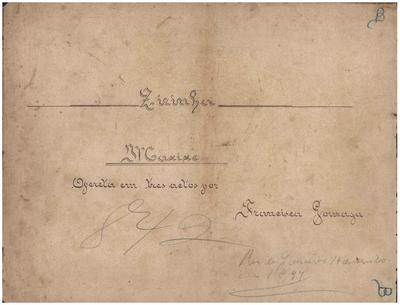 B
Zizinha
Maxixe
Opereta em tres actos por
Francisca Gonzaga
842
Rio de Janeiro
B